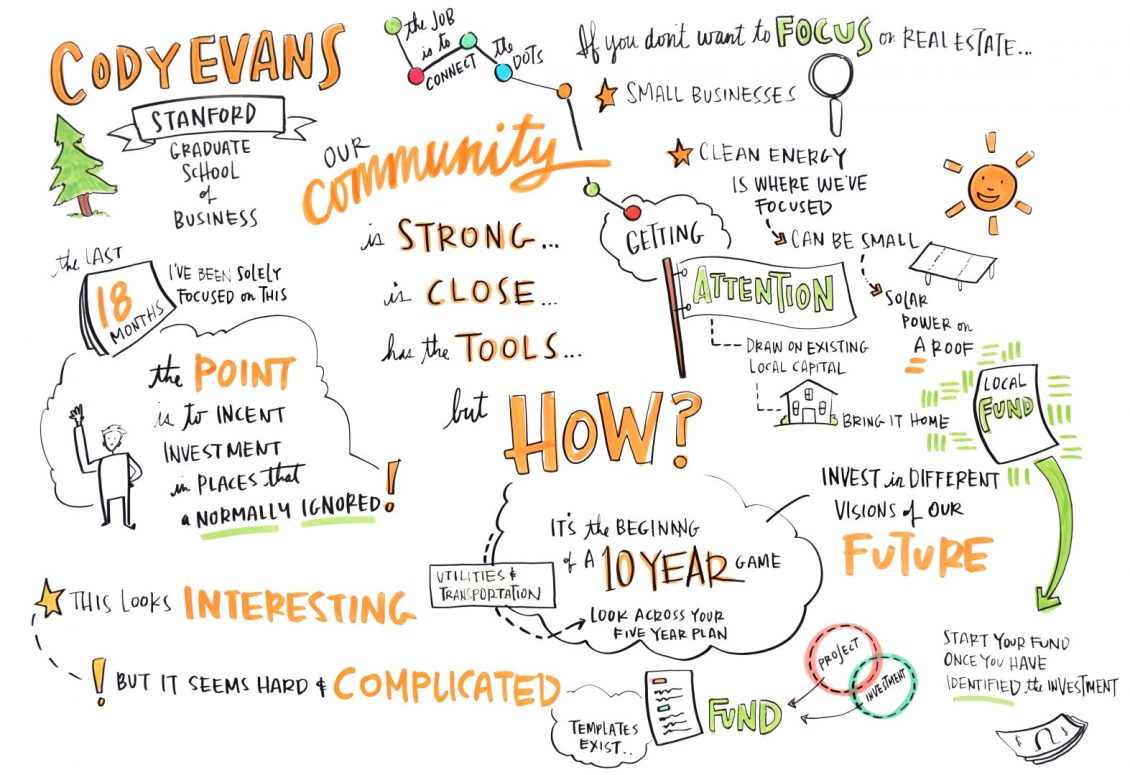 CODY EVANS
STANFORD
GRADUATE
SCHOOL
of
BUSINESS
the JOB
is to
CONNECT
the
DOTS
If you don't want to FOCUS on REAL ESTATE...
SMALL BUSINESSES
CLEAN ENERGY
IS WHERE WE'VE
FOCUSED
CAN BE SMALL
SOLAR
POWER on
A ROOF
OUR
community
is STRONG...
is CLOSE...
has the TOOLS...
but
HOW?
GETTING
ATTENTION
DRAW ON EXISTING
LOCAL CAPITAL
BRING IT HOME
LOCAL
FUND
the LAST
18
MONTHS
I'VE BEEN SOLELY
FOCUSED on THIS
the POINT
is to INCENT
INVESTMENT
in PLACES that
a NORMALLY IGNORED!
INVEST in DIFFERENT
VISIONS of OUR
FUTURE
IT'S the BEGINNG
of A 10 YEAR GAME
UTILITIES &
TRANSPORTATION
LOOK ACROSS YOUR
FIVE YEAR PLAN
THIS LOOKS INTERESTING
! BUT IT SEEMS HARD & COMPLICATED
TEMPLATES
EXIST..
FUND
PROJECT
INVESTMENT
START YOUR FUND
ONCE YOU HAVE
IDENTIFIED the INVESTMENT